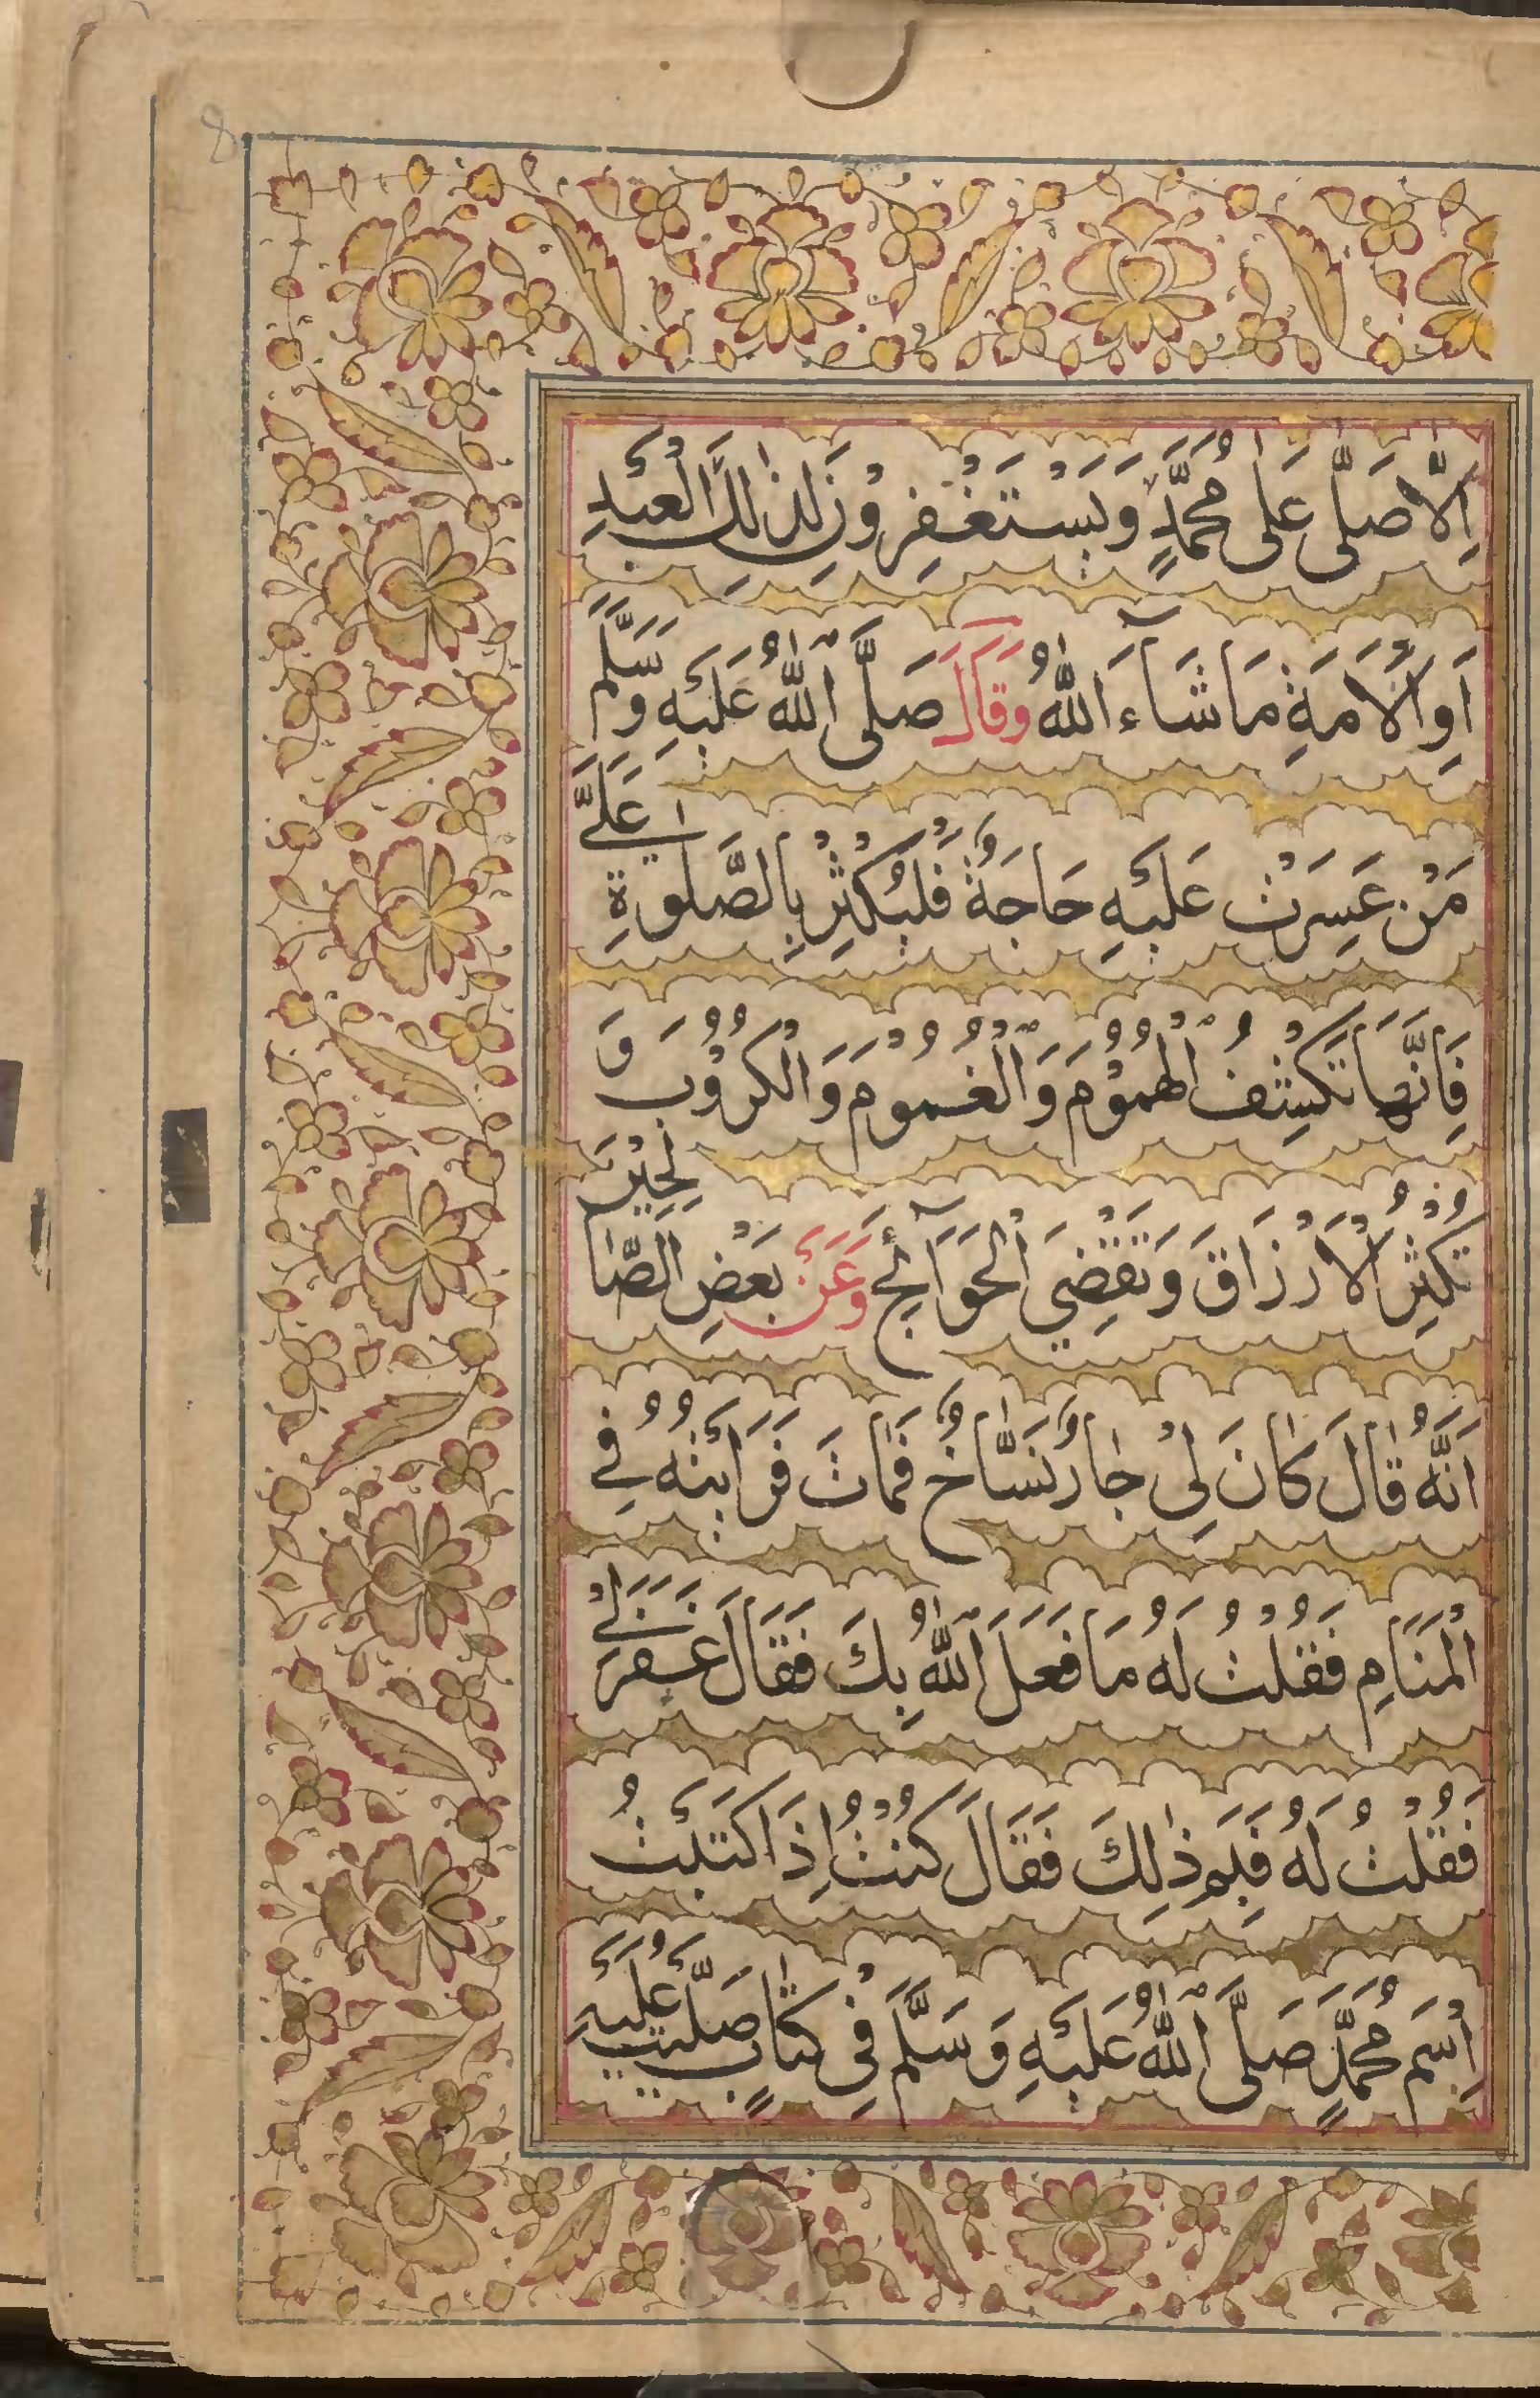 اِلَّا صَلّٰى عَلٰى مُحَمَّدٍ وَيَسْتَغْفِرُوْنَ لِذٰلِكَ الْعَبْدِ
اَوِ الْاَمَةِ مَا شَآءَ اللّٰهُ وَقَالَ صَلَّى اللّٰهُ عَلَيْهِ وَسَلَّمَ
مَنْ عَسِرَتْ عَلَيْهِ حَاجَةٌ فَلْيُكْثِرْ بِالصَّلٰوةِ عَلَيَّ
فَاِنَّهَا تَكْشِفُ الْهُمُوْمَ وَالْغُمُوْمَ وَالْكُرُوْبَ وَ
تُكْثِرُ الْاَرْزَاقَ وَتَقْضِي الْحَوَآئِجَ وَعَنْ بَعْضِ الصَّالِحِيْنَ
اَنَّهُ قَالَ كَانَ لِيْ جَارٌ نَسَّاخٌ فَمَاتَ فَرَاَيْتُهُ فِي
الْمَنَامِ فَقُلْتُ لَهُ مَا فَعَلَ اللّٰهُ بِكَ فَقَالَ غَفَرَ لِيْ
فَقُلْتُ لَهُ فَبِمَ ذٰلِكَ فَقَالَ كُنْتُ اِذَا كَتَبْتُ
اسْمَ مُحَمَّدٍ صَلَّى اللّٰهُ عَلَيْهِ وَسَلَّمَ فِيْ كِتَابٍ صَلَّيْتُ عَلَيْهِ